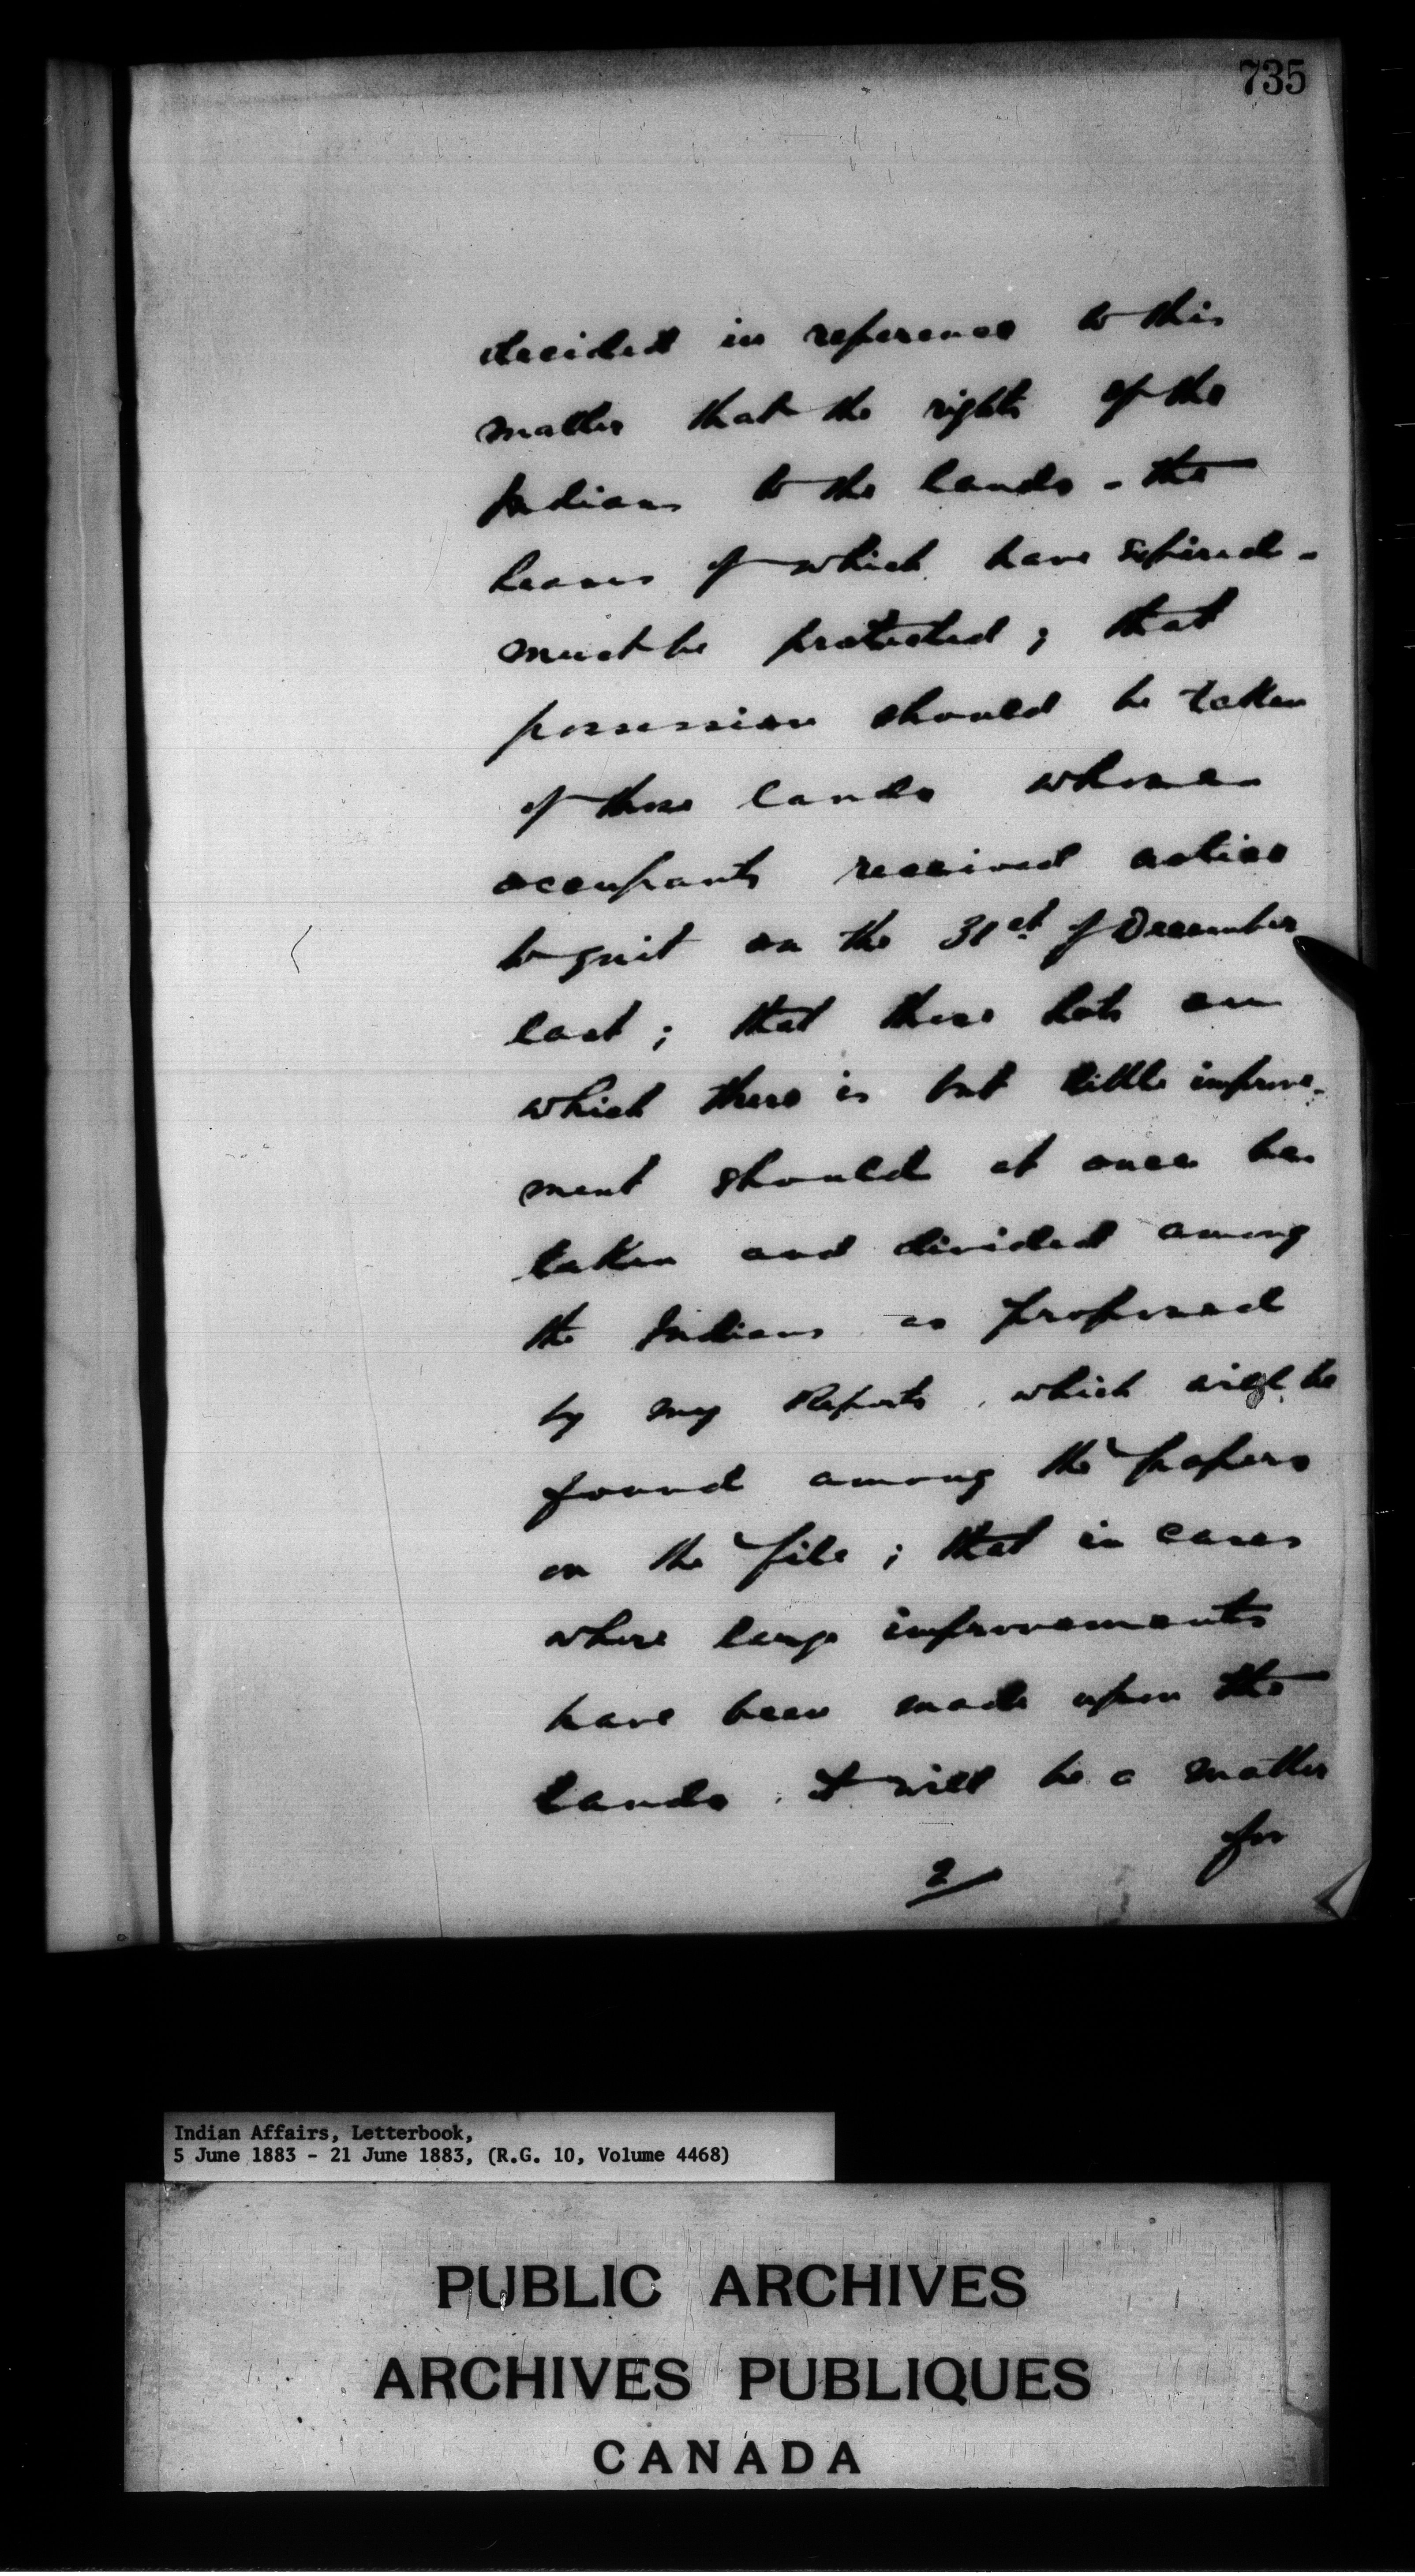 735
decided in reference to this
matter that the rights of the
Indians to the lands - the
leases of which have expired -
must be protected ; that
possession should be taken
of those lands whose
occupants received notice
to quit on the 31st of December
last ; that those lots on
which there is but little improve-
ment should at once be
taken and divided among
the Indians as proposed
by my Reports, which will be
found among the papers
on the file ; that in cases
where large improvements
have been made upon the
lands, it will be a matter
for
2
Indian Affairs, Letterbook,
5 June 1883 - 21 June 1883, (R.G. 10, Volume 4468)
PUBLIC ARCHIVES
ARCHIVES PUBLIQUES
CANADA